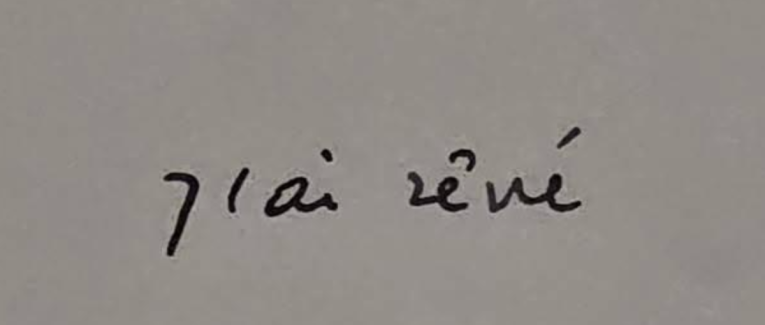 J'ai rêvé